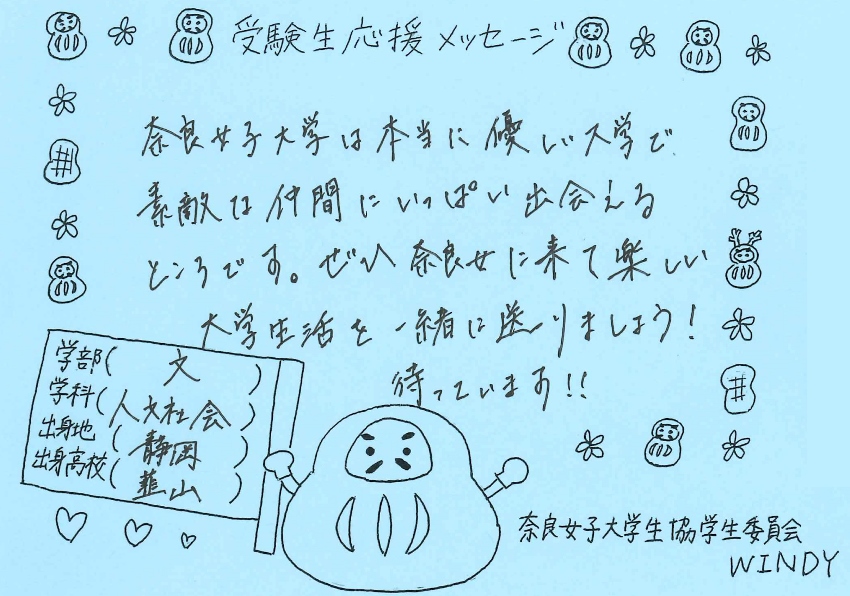 受験生応援メッセージ
奈良女子大学は本当に優しい大学で
素敵な仲間にいっぱい出会える
ところです。ぜひ奈良女に来て楽しい
大学生活を一緒に送りましょう!
待っています!!
学部(文)
学科(人文社会)
出身地(静岡)
出身高校(韮山)
奈良女子大学生協学生委員会
WINDY